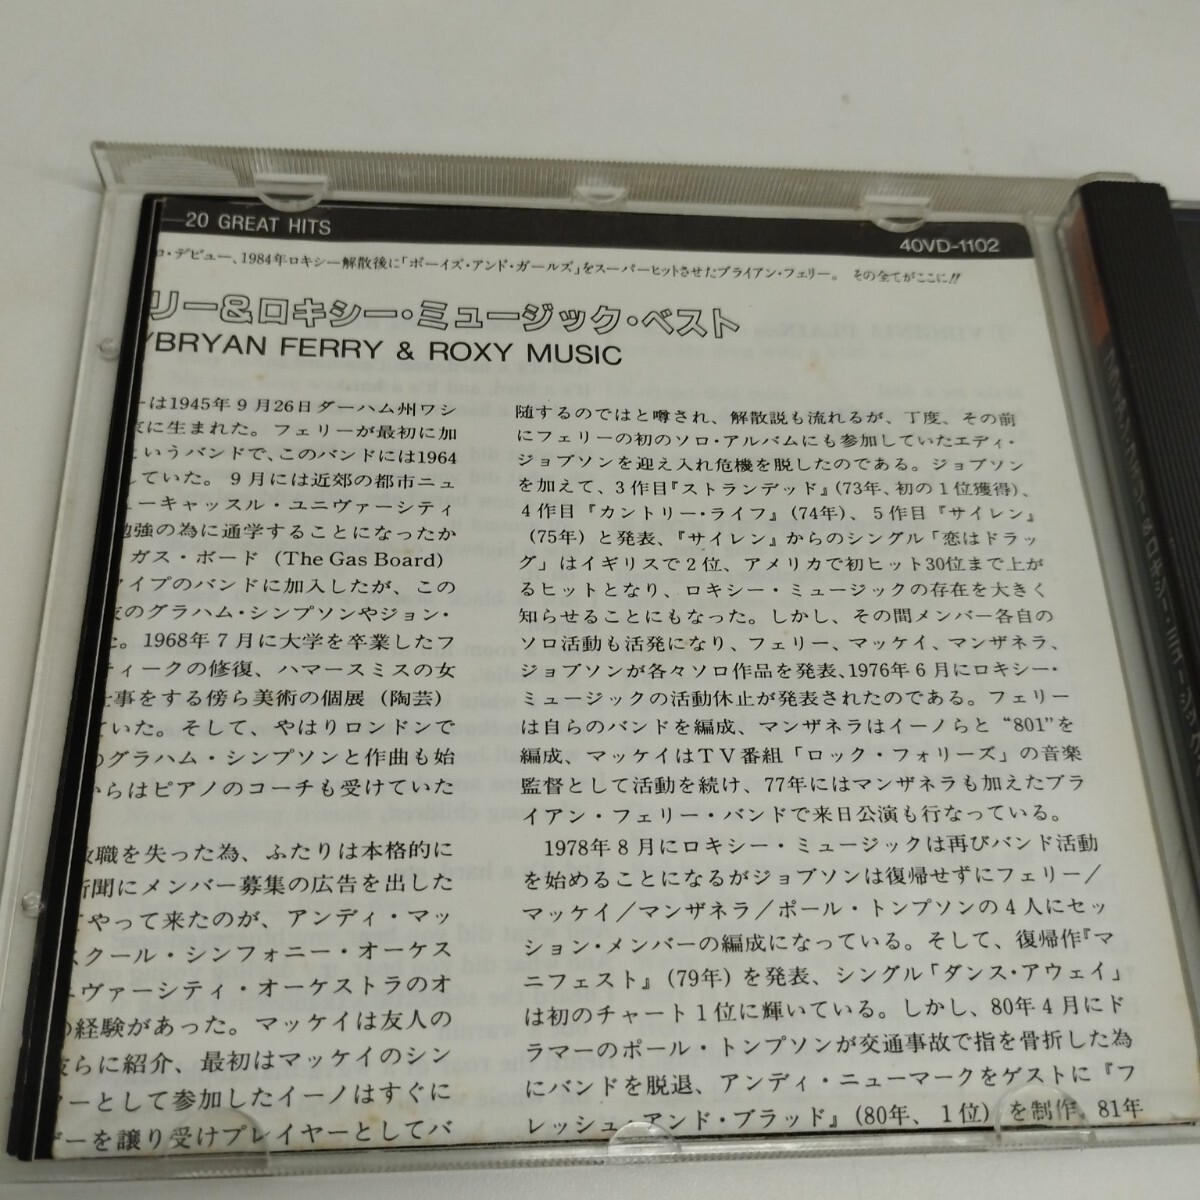 20 GREAT HITS
40VD-1102
ロ・デビュー、1984年ロキシー解散後に「ボーイズ・アンド・ガールズ」をスーパーヒットさせたブライアン・フェリー。 その全てがここに!!
リー&ロキシー・ミュージック・ベスト
/BRYAN FERRY & ROXY MUSIC
ーは1945年9月26日ダーハム州ワシ
に生まれた。フェリーが最初に加
というバンドで、このバンドには1964
していた。9月には近郊の都市ニュ
ューキャッスル・ユニヴァーシティ
勉強の為に通学することになったか
ガス・ボード (The Gas Board)
タイプのバンドに加入したが、この
友のグラハム・シンプソンやジョン・
た。1968年7月に大学を卒業したフ
ティークの修復、ハマースミスの女
仕事をする傍ら美術の個展 (陶芸)
ていた。そして、やはりロンドンで
のグラハム・シンプソンと作曲も始
からはピアノのコーチも受けていた
教職を失った為、ふたりは本格的に
新聞にメンバー募集の広告を出した
てやって来たのが、アンディ・マッ
スクール・シンフォニー・オーケス
ニヴァーシティ・オーケストラのオ
の経験があった。マッケイは友人の
彼らに紹介、最初はマッケイのシン
ァーとして参加したイーノはすぐに
ザーを譲り受けプレイヤーとしてバ
随するのではと噂され、解散説も流れるが、丁度、その前
にフェリーの初のソロ・アルバムにも参加していたエディ・
ジョブソンを迎え入れ危機を脱したのである。ジョブソン
を加えて、3作目『ストランデッド』(73年、初の1位獲得)、
4作目『カントリー・ライフ』(74年)、5作目『サイレン』
(75年) と発表、『サイレン』からのシングル「恋はドラッ
グ」はイギリスで2位、アメリカで初ヒット30位まで上が
るヒットとなり、ロキシー・ミュージックの存在を大きく
知らせることにもなった。しかし、その間メンバー各自の
ソロ活動も活発になり、フェリー、マッケイ、マンザネラ、
ジョブソンが各々ソロ作品を発表、1976年6月にロキシー・
ミュージックの活動休止が発表されたのである。フェリー
は自らのバンドを編成、マンザネラはイーノらと “801”を
編成、マッケイはTV番組「ロック・フォリーズ」の音楽
監督として活動を続け、77年にはマンザネラも加えたブラ
イアン・フェリー・バンドで来日公演も行なっている。
1978年8月にロキシー・ミュージックは再びバンド活動
を始めることになるがジョブソンは復帰せずにフェリー/
マッケイ/マンザネラ/ポール・トンプソンの4人にセッ
ション・メンバーの編成になっている。そして、復帰作『マ
ニフェスト』(79年) を発表、シングル「ダンス・アウェイ」
は初のチャート1位に輝いている。しかし、80年4月にド
ラマーのポール・トンプソンが交通事故で指を骨折した為
にバンドを脱退、アンディ・ニューマークをゲストに『フ
レッシュ・アンド・ブラッド』(80年、1位) を制作、81年